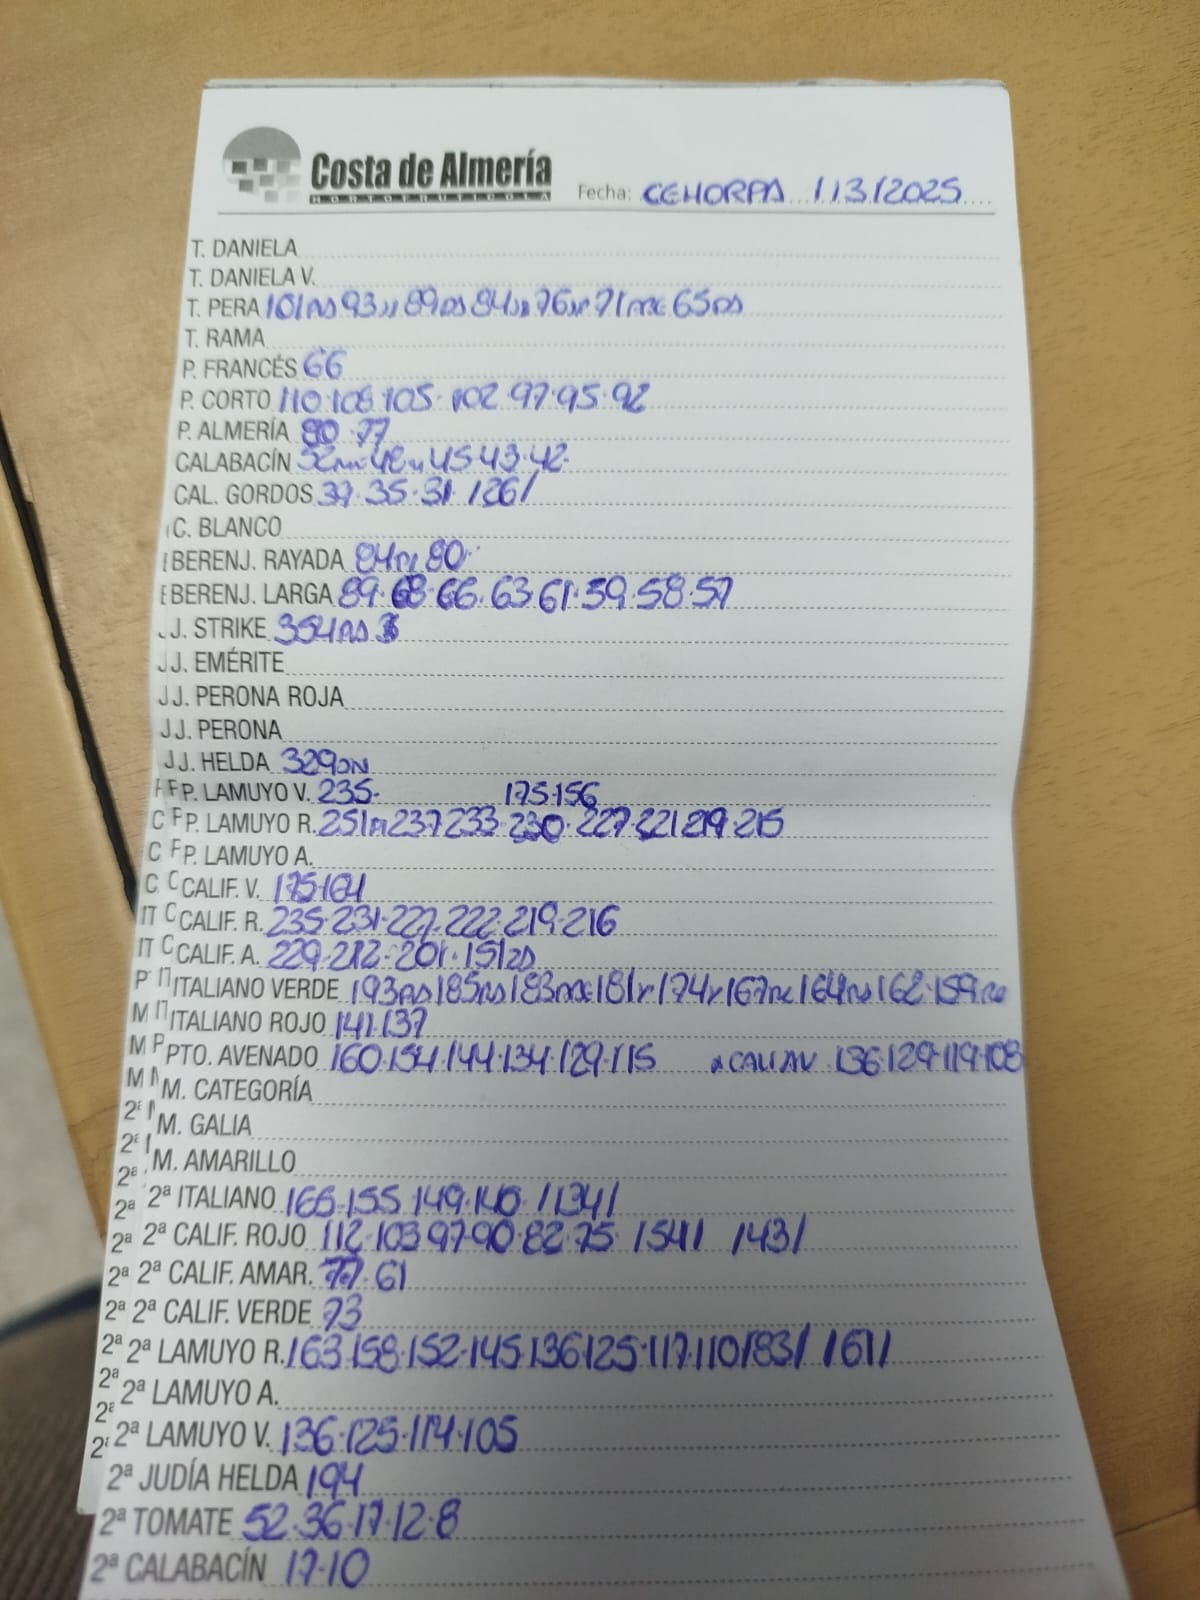 Costa de Almería
HORTOFRUTICOLA
Fecha: CEHORPA 1/3/2025
T. DANIELA
T. DANIELA V.
T. PERA 101 93 89 84 76 71 65
T. RAMA
P. FRANCÉS 66
P. CORTO 110·108·105·102·97·95·92
P. ALMERÍA 80·77
CALABACÍN 52 48 45·43·42
CAL. GORDOS 39·35·31 /26/
C. BLANCO
BERENJ. RAYADA 84 80
BERENJ. LARGA 89·68·66·63·61·59·58·57
J. STRIKE 354
J. EMÉRITE
J. PERONA ROJA
J. PERONA
J. HELDA 329
P. LAMUYO V. 235· 175·156
P. LAMUYO R. 251 237 233 230·227·221 219·215
P. LAMUYO A.
CALIF. V. 175·164
CALIF. R. 235·231·227·222·219·216
CALIF. A. 229·212·201·151
ITALIANO VERDE 193 185 183 181 174 167 164 162·159
ITALIANO ROJO 141·137
PTO. AVENADO 160·154·144·134·129·115 CALIAV 136·129·119·108
M. CATEGORÍA
M. GALIA
M. AMARILLO
2ª ITALIANO 165·155·149·140 /134/
2ª CALIF. ROJO 112·103·97·90·82·75 /54/ /43/
2ª CALIF. AMAR. 77·61
2ª CALIF. VERDE 73
2ª LAMUYO R. 163·158·152·145·136·125·117·110 /83/ /61/
2ª LAMUYO A.
2ª LAMUYO V. 136·125·114·105
2ª JUDÍA HELDA 194
2ª TOMATE 52·36·17·12·8
2ª CALABACÍN 17·10